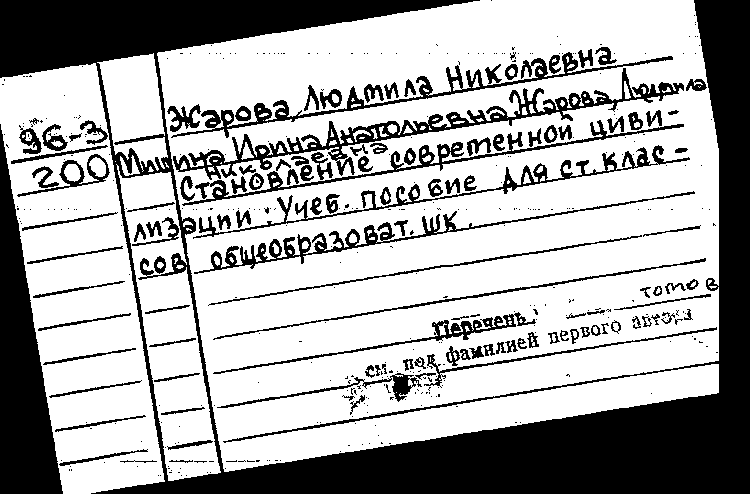 Жарова, Людмила Николаевна
96-3
200
Мишина, Ирина Анатольевна, Жарова, Людмила
Николаевна
Становление современной циви-
лизации: Учеб. пособие для ст. клас-
сов общеобразоват. шк.
томов
Перечень
см. под фамилией первого автора